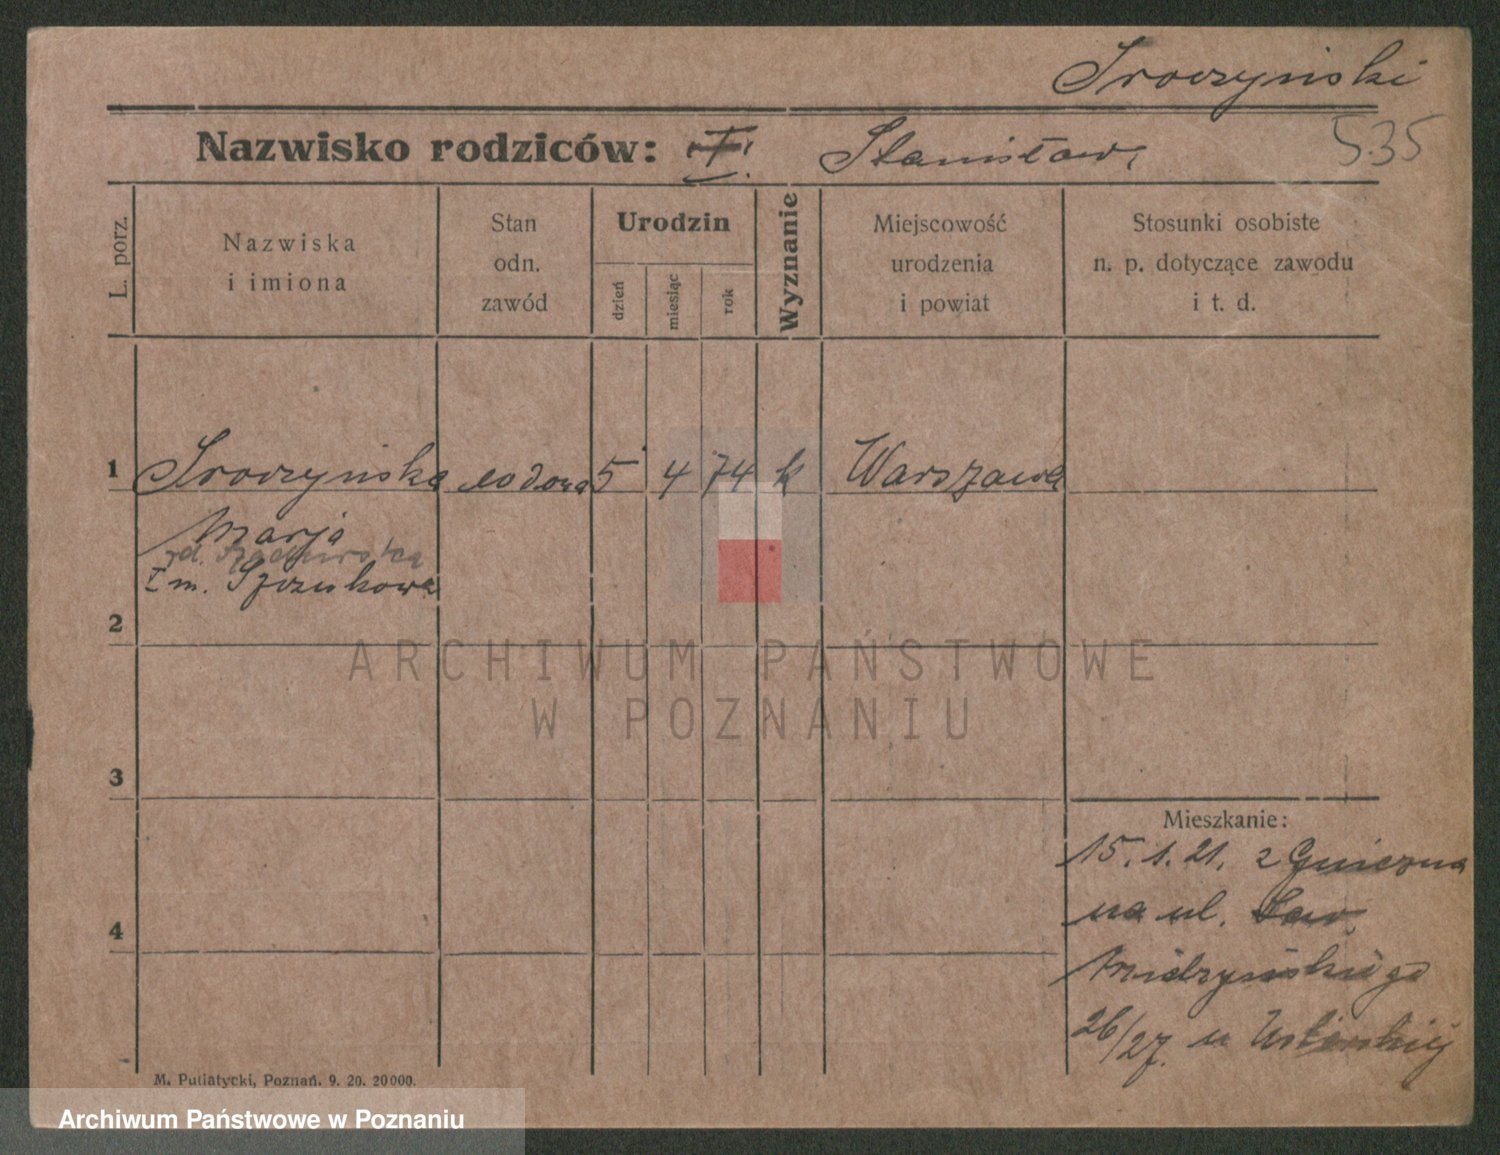 Sroczyński
Nazwisko rodziców: I. Stanisława
535
L. porz.
Nazwiska
i imiona
Stan
odn.
zawód
Urodzin
dzień
miesiąc
rok
Wyznanie
Miejscowość
urodzenia
i powiat
Stosunki osobiste
n. p. dotyczące zawodu
i t. d.
1 Sroczyńska wdowa 5 4 74 k Warszawa
Marja
zd.
I m. Szczukowa
2
3
4
Mieszkanie:
15.1.21. z Gniezna
na ul.
26/27. u
M. Putiatycki, Poznań. 9. 20. 20000.
ARCHIWUM PAŃSTWOWE
W POZNANIU
Archiwum Państwowe w Poznaniu